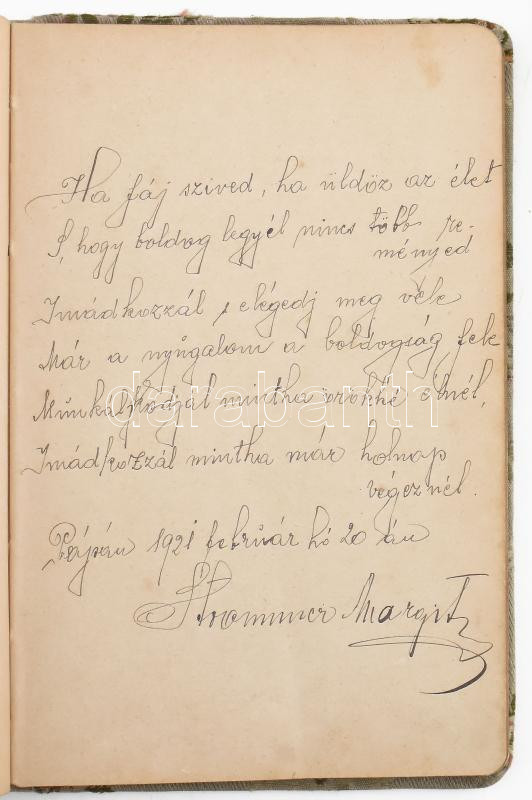 Ha fáj szived, ha üldöz az élet
S, hogy boldog legyél nincs több re-
ményed
Imádkozzál, elégedj meg véle
Már a nyúgalom a boldogság fele
Munkálkodjál mintha örökké élnél,
Imádkozzál mintha már holnap
végeznél.
Pápán 1921 február hó 20 án
Margit
darabanth